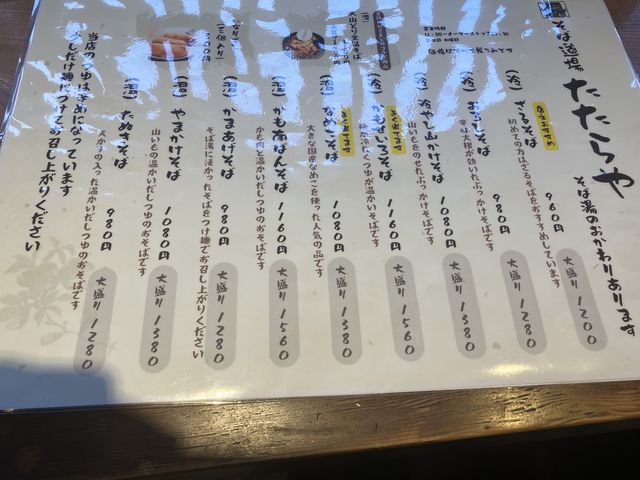 そば道場
たたらや
そば湯のおかわりあります
店主おすすめ
(冷) ざるそば 960円 大盛り 1200
初めての方はざるそばをおすすめしています
(冷) おろしそば 980円 大盛り 1280
辛味大根が効いたぶっかけそばです
(冷) 冷やし山かけそば 1080円 大盛り 1380
山いもをのせたぶっかけそばです
1160円 大盛り 1560
(温) なめこそば 1080円 大盛り 1380
大きな国産なめこを使った人気の品です
(温) かも南ばんそば 1160円 大盛り 1560
かも肉と温かいだしつゆのおそばです
(温) かまあげそば 980円 大盛り 1280
そば湯に浸かったそばをつけ麺でお召し上がりください
(温) やまかけそば 1080円 大盛り 1380
山いもの温かいだしつゆのおそばです
(温) たぬきそば 980円 大盛り 1280
天かすの入った温かいだしつゆのおそばです
当店のつゆは辛めになっています
少しだけ麺につけてお召し上がりください
(三個入り)
大山どり